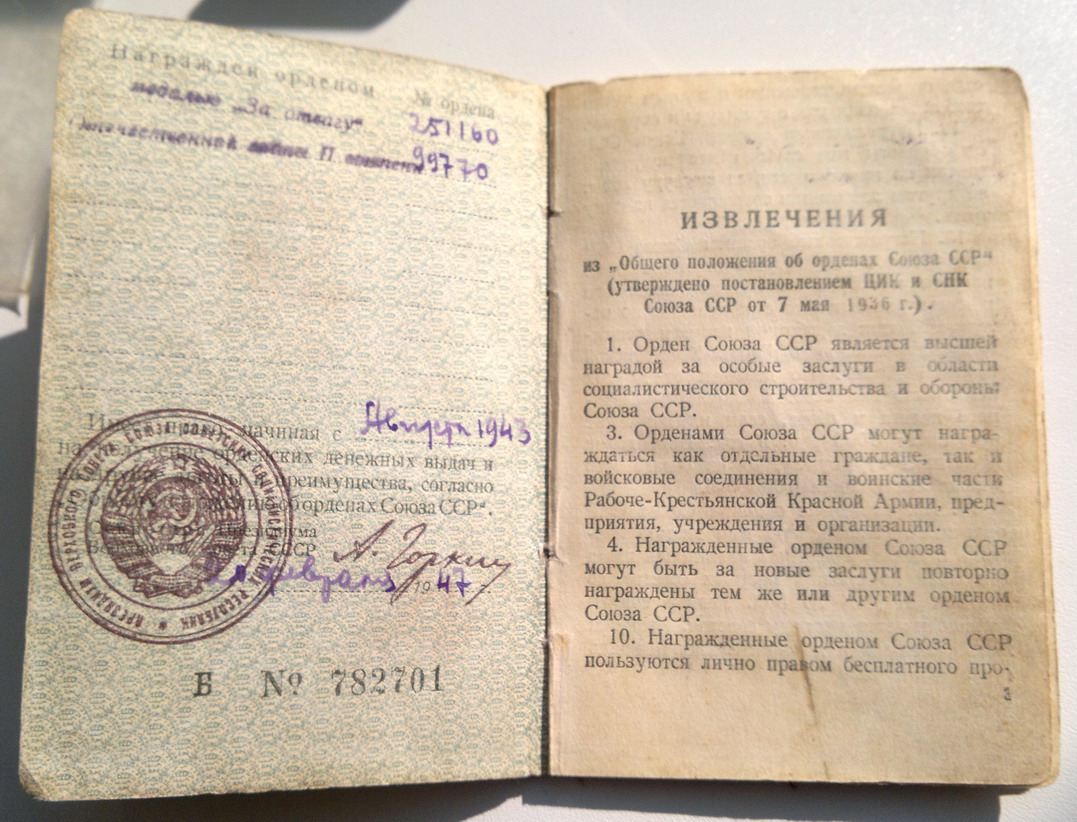 Награжден орденом № ордена
медалью „За отвагу“ 251160
Отечественной войны II степени 99770
начиная с Августа 1943
на получение орденских денежных выдач и
преимущества, согласно
об орденах Союза ССР“.
Президиума
Верховного Совета СССР А. Горкин
февраля 1947
ПРЕЗИДИУМ ВЕРХОВНОГО СОВЕТА СОЮЗА СОВЕТСКИХ СОЦИАЛИСТИЧЕСКИХ РЕСПУБЛИК
Б № 782701
ИЗВЛЕЧЕНИЯ
из „Общего положения об орденах Союза ССР“
(утверждено постановлением ЦИК и СНК
Союза ССР от 7 мая 1936 г.).
1. Орден Союза ССР является высшей
наградой за особые заслуги в области
социалистического строительства и обороны
Союза ССР.
3. Орденами Союза ССР могут награ-
ждаться как отдельные граждане, так и
войсковые соединения и воинские части
Рабоче-Крестьянской Красной Армии, пред-
приятия, учреждения и организации.
4. Награжденные орденом Союза ССР
могут быть за новые заслуги повторно
награждены тем же или другим орденом
Союза ССР.
10. Награжденные орденом Союза ССР
пользуются лично правом бесплатного про-
3